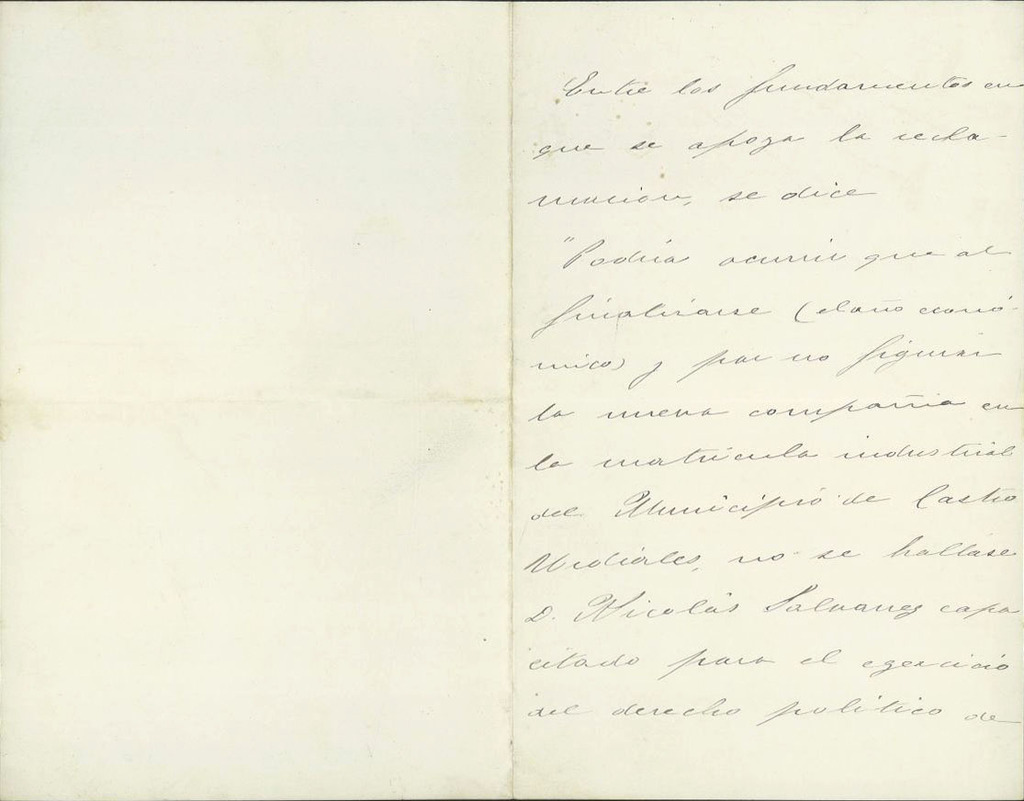 Entre los fundamentos en
que se apoya la recla-
macion, se dice
"Podria ocurrir que al
finalizarse (el año econó-
mico) y por no figurar
la nueva compañia en
la matricula industrial
del Municipio de Castro
Urdiales, no se hallase
D. Nicolás Salvarrey capa
citado para el egercicio
del derecho politico de